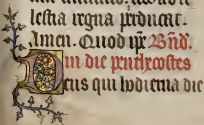 lestia regna perducat.
Amen. Quod ipe Bnd.
in die penthecostes
Deus qui hodierna die